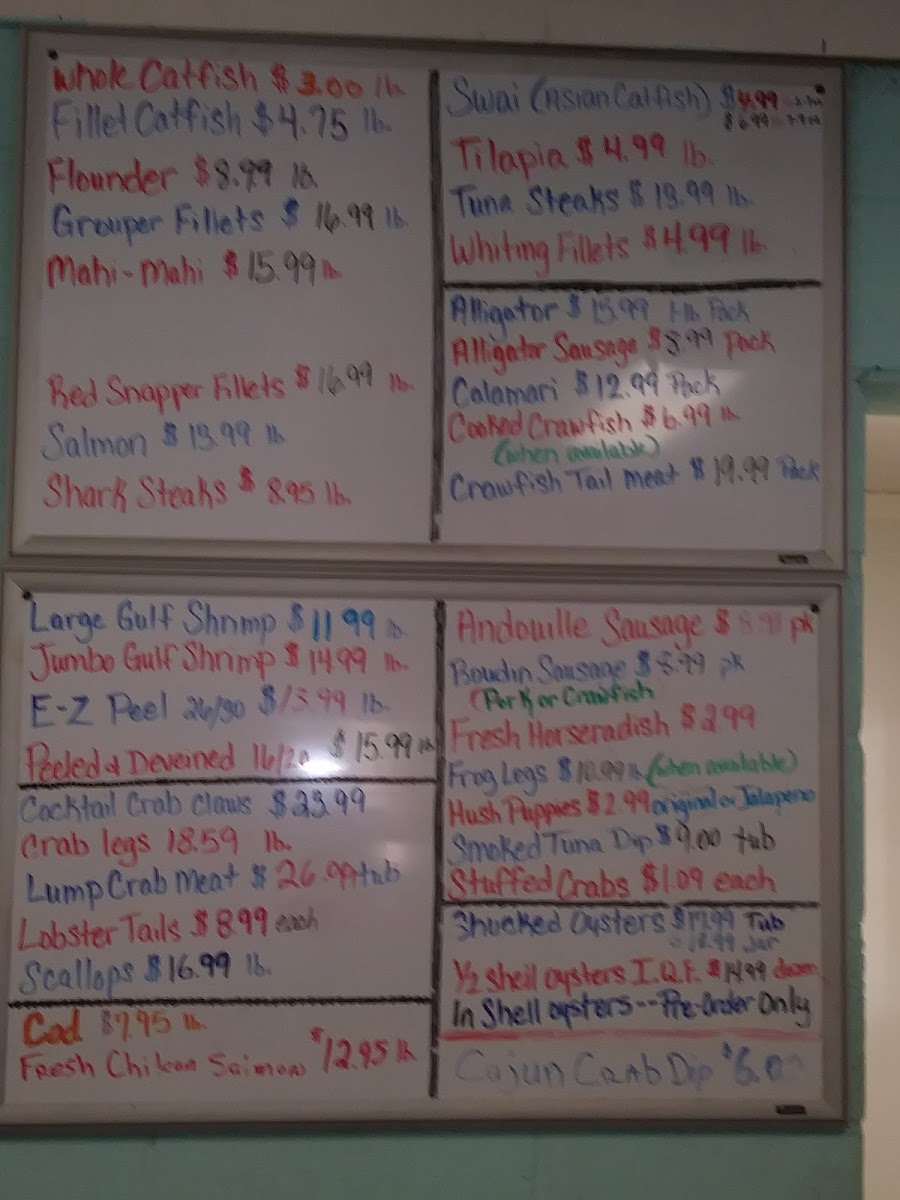 Whole Catfish $3.00 lb
Fillet Catfish $4.75 lb.
Flounder $8.99 lb.
Grouper Fillets $ 16.99 lb
Mahi-Mahi $15.99 lb.
Red Snapper Fillets $16.99 lb.
Salmon $13.99 lb
Shark Steaks $ 8.95 lb.
Swai (Asian Catfish) $4.99
$6.99
Tilapia $4.99 lb.
Tuna Steaks $13.99 lb.
Whiting Fillets $4.99 lb
Alligator $15.99 1-lb. Pack
Alligator Sausage $8.99 pack
Calamari $12.99 Pack
Cooked Crawfish $6.99 lb
(when available)
Crawfish Tail meat $19.99 Pack
Large Gulf Shrimp $11.99 lb.
Jumbo Gulf Shrimp $14.99 lb.
E-Z Peel 26/30 $13.99 lb.
Peeled & Deveined 16/20 $15.99 lb
Cocktail Crab Claws $23.99
Crab legs 18.59 lb.
Lump Crab Meat $26.99 tub
Lobster Tails $8.99 each
Scallops $16.99 lb.
Cod $7.95 lb.
Fresh Chilean Salmon $12.95 lb
Andouille Sausage $8.99 pk
Boudin Sausage $8.99 pk
(Pork or Crawfish
Fresh Horseradish $2.99
Frog Legs $10.99 lb (when available)
Hush Puppies $2.99 original or Jalapeno
Smoked Tuna Dip $9.00 tub
Stuffed Crabs $1.09 each
Shucked Oysters $17.99 Tub
Jar
1/2 shell oysters I.Q.F. $14.99 dozen
In Shell oysters--Pre-Order Only
Cajun Crab Dip